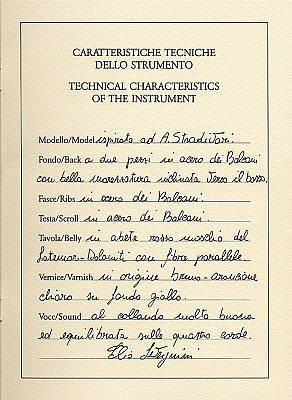 CARATTERISTICHE TECNICHE
DELLO STRUMENTO
TECHNICAL CHARACTERISTICS
OF THE INSTRUMENT
Modello/Model ispirato ad A. Stradivari
Fondo/Back a due pezzi in acero dei Balcani
con bella marezzatura inclinata verso il basso.
Fasce/Ribs in acero dei Balcani.
Testa/Scroll in acero dei Balcani.
Tavola/Belly in abete rosso maschio del
Latemar-Dolomiti con fibre parallele.
Vernice/Varnish in origine bruno-arancione
chiaro su fondo giallo.
Voce/Sound al collaudo molto buona
ed equilibrata sulle quattro corde.
Elio